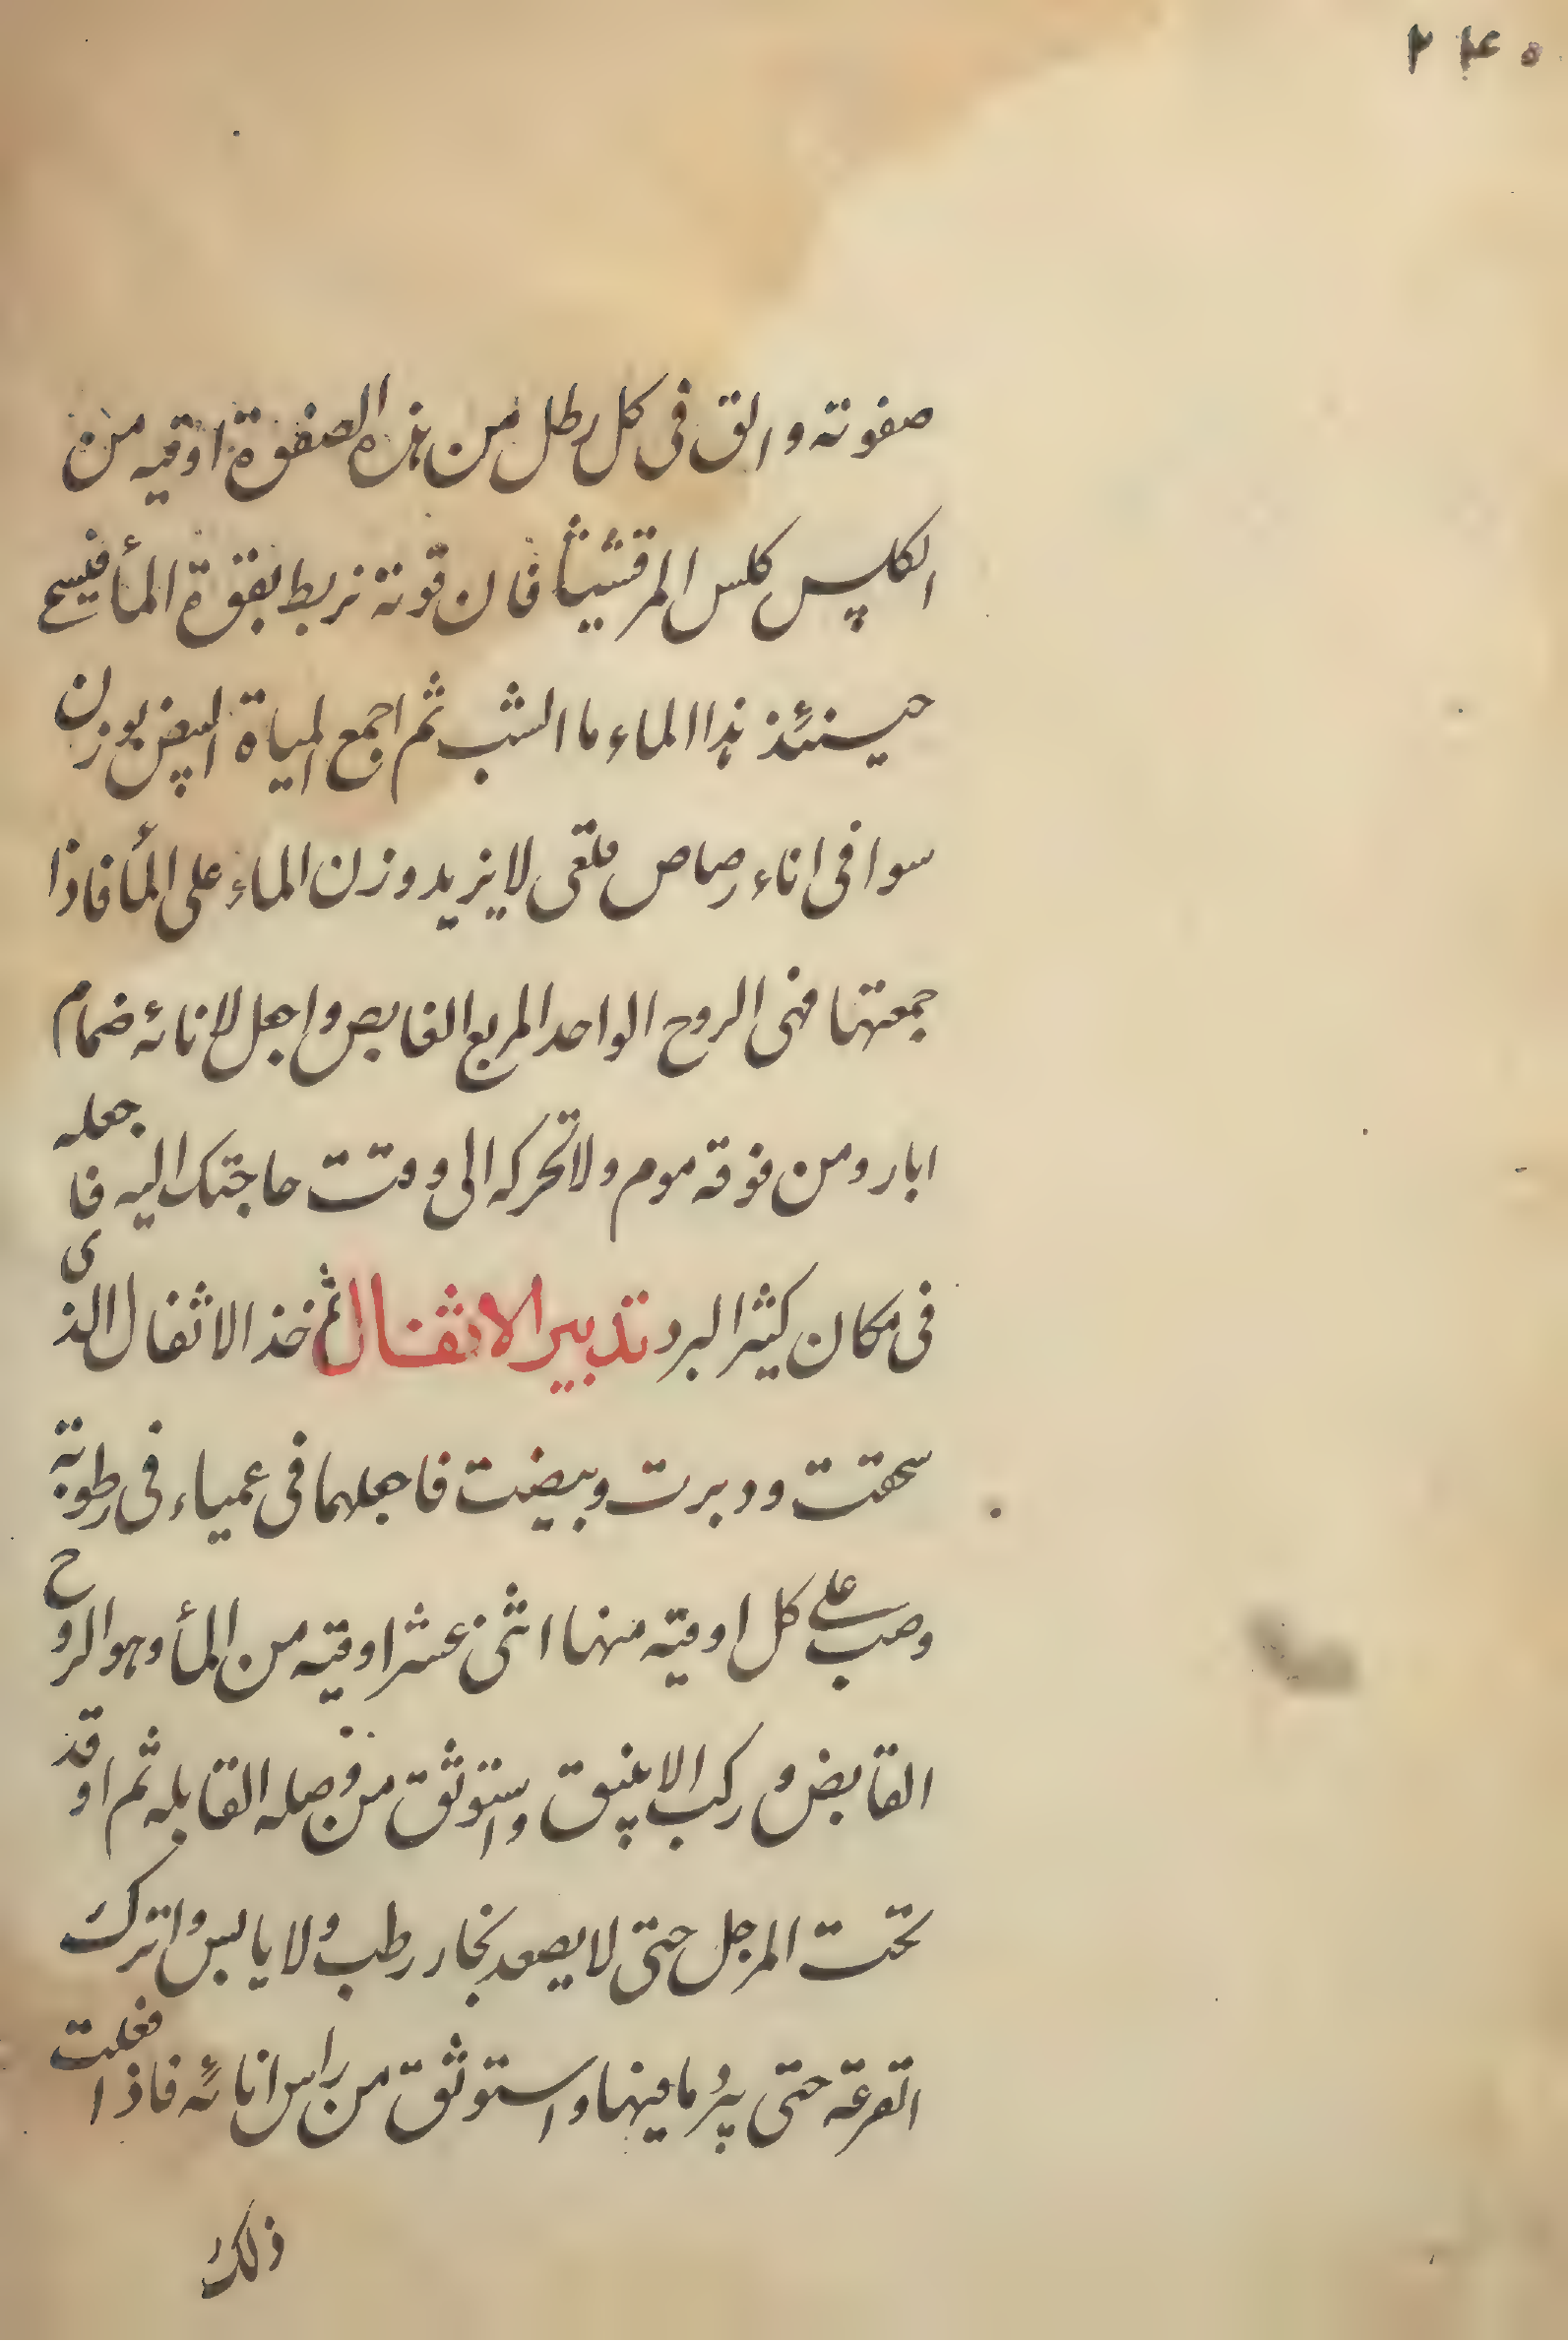 ۲۴۵
صفوته والق فى كل رطل من هذه الصفوة اوقيه من
الكلس كلس المرقشيثا فان قوته تربط بقوة المأ فيسمى
حينئذ هذا الماء ما الشب ثم اجمع المياة البيض بوزن
سوا فى اناء رصاص قلعى لا يزيد وزن الماء على المأ فاذا
جمعتها فهى الروح الواحد المربع الغايص واجعل لانائه ضمام
ابار ومن فوقه موم ولا تحركه الى وقت حاجتك اليه فاجعله
فى مكان كثير البرد تدبير الاثفال ثم خذ الاثفال الذى
سحقت ودبرت وبيضت فاجعلهما فى عمياء فى رطوبة
وصب على كل اوقيه منها اثنى عشر اوقيه من المأ وهو الروح
القابض وركب الانبيق واستوثق من وصله القابله ثم اوقد
تحت المرجل حتى لا يصعد بخار رطب ولا يابس واترك
القرعة حتى يبرد ما فيها واستوثق من راس انائه فاذا فعلت
ذلك